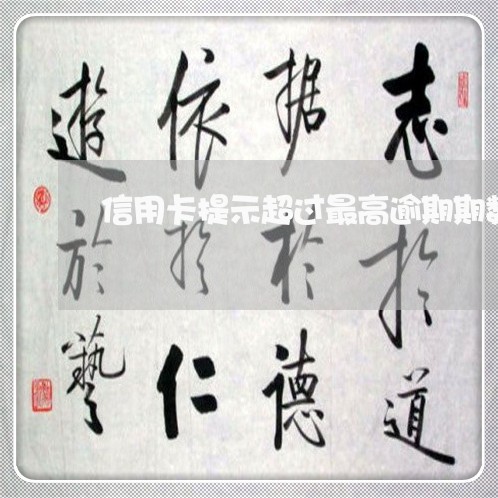 志於道
据於德
依於仁
遊於藝
信用卡提示超过最高逾期期数